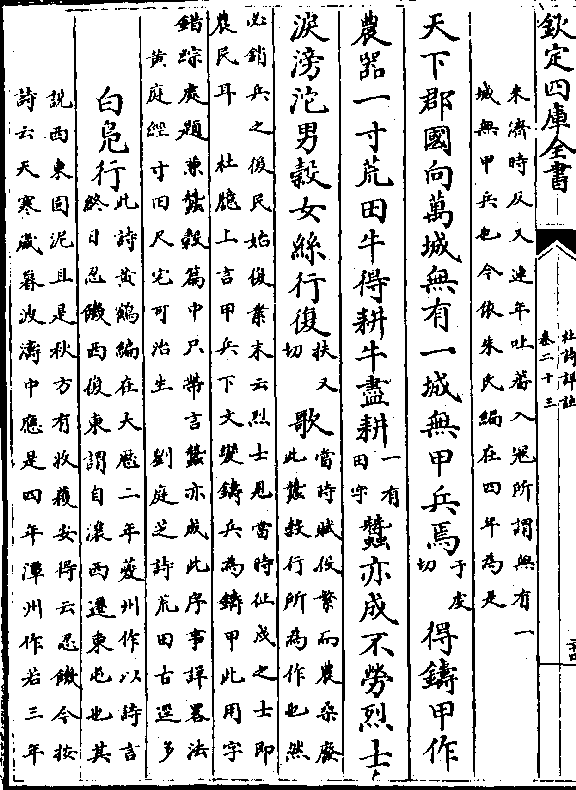 欽定四庫全書
杜詩詳註
卷二十三
未濟時反又連年吐蕃入冦所謂無有一
城無甲兵也今依朱氏編在四年為是
天下郡國向萬城無有一城無甲兵焉于䖍切得鑄甲作
農器一寸荒田牛得耕牛盡耕一有田字蠶亦成不勞烈士
淚滂沱男榖女絲行復扶又切歌當時賦役繁而農桑廢
此蠶穀行所為作也然
必銷兵之後民始復業末云烈士見當時征戍之士即
農民耳 杜臆上言甲兵下文變鑄兵為鑄甲此用字
錯綜處題兼蠶榖篇中只帶言蠶亦成此序事詳畧法
黄庭經寸田尺宅可治生 劉庭芝詩荒田古選多
白鳬行此詩黄鶴編在大厯二年夔州作以詩言
終日忍饑西復東謂自瀼西遷東屯也其
說西東固泥且是秋方有收穫安得云忍饑今按
詩云天寒歲暮波濤中應是四年潭州作若三年